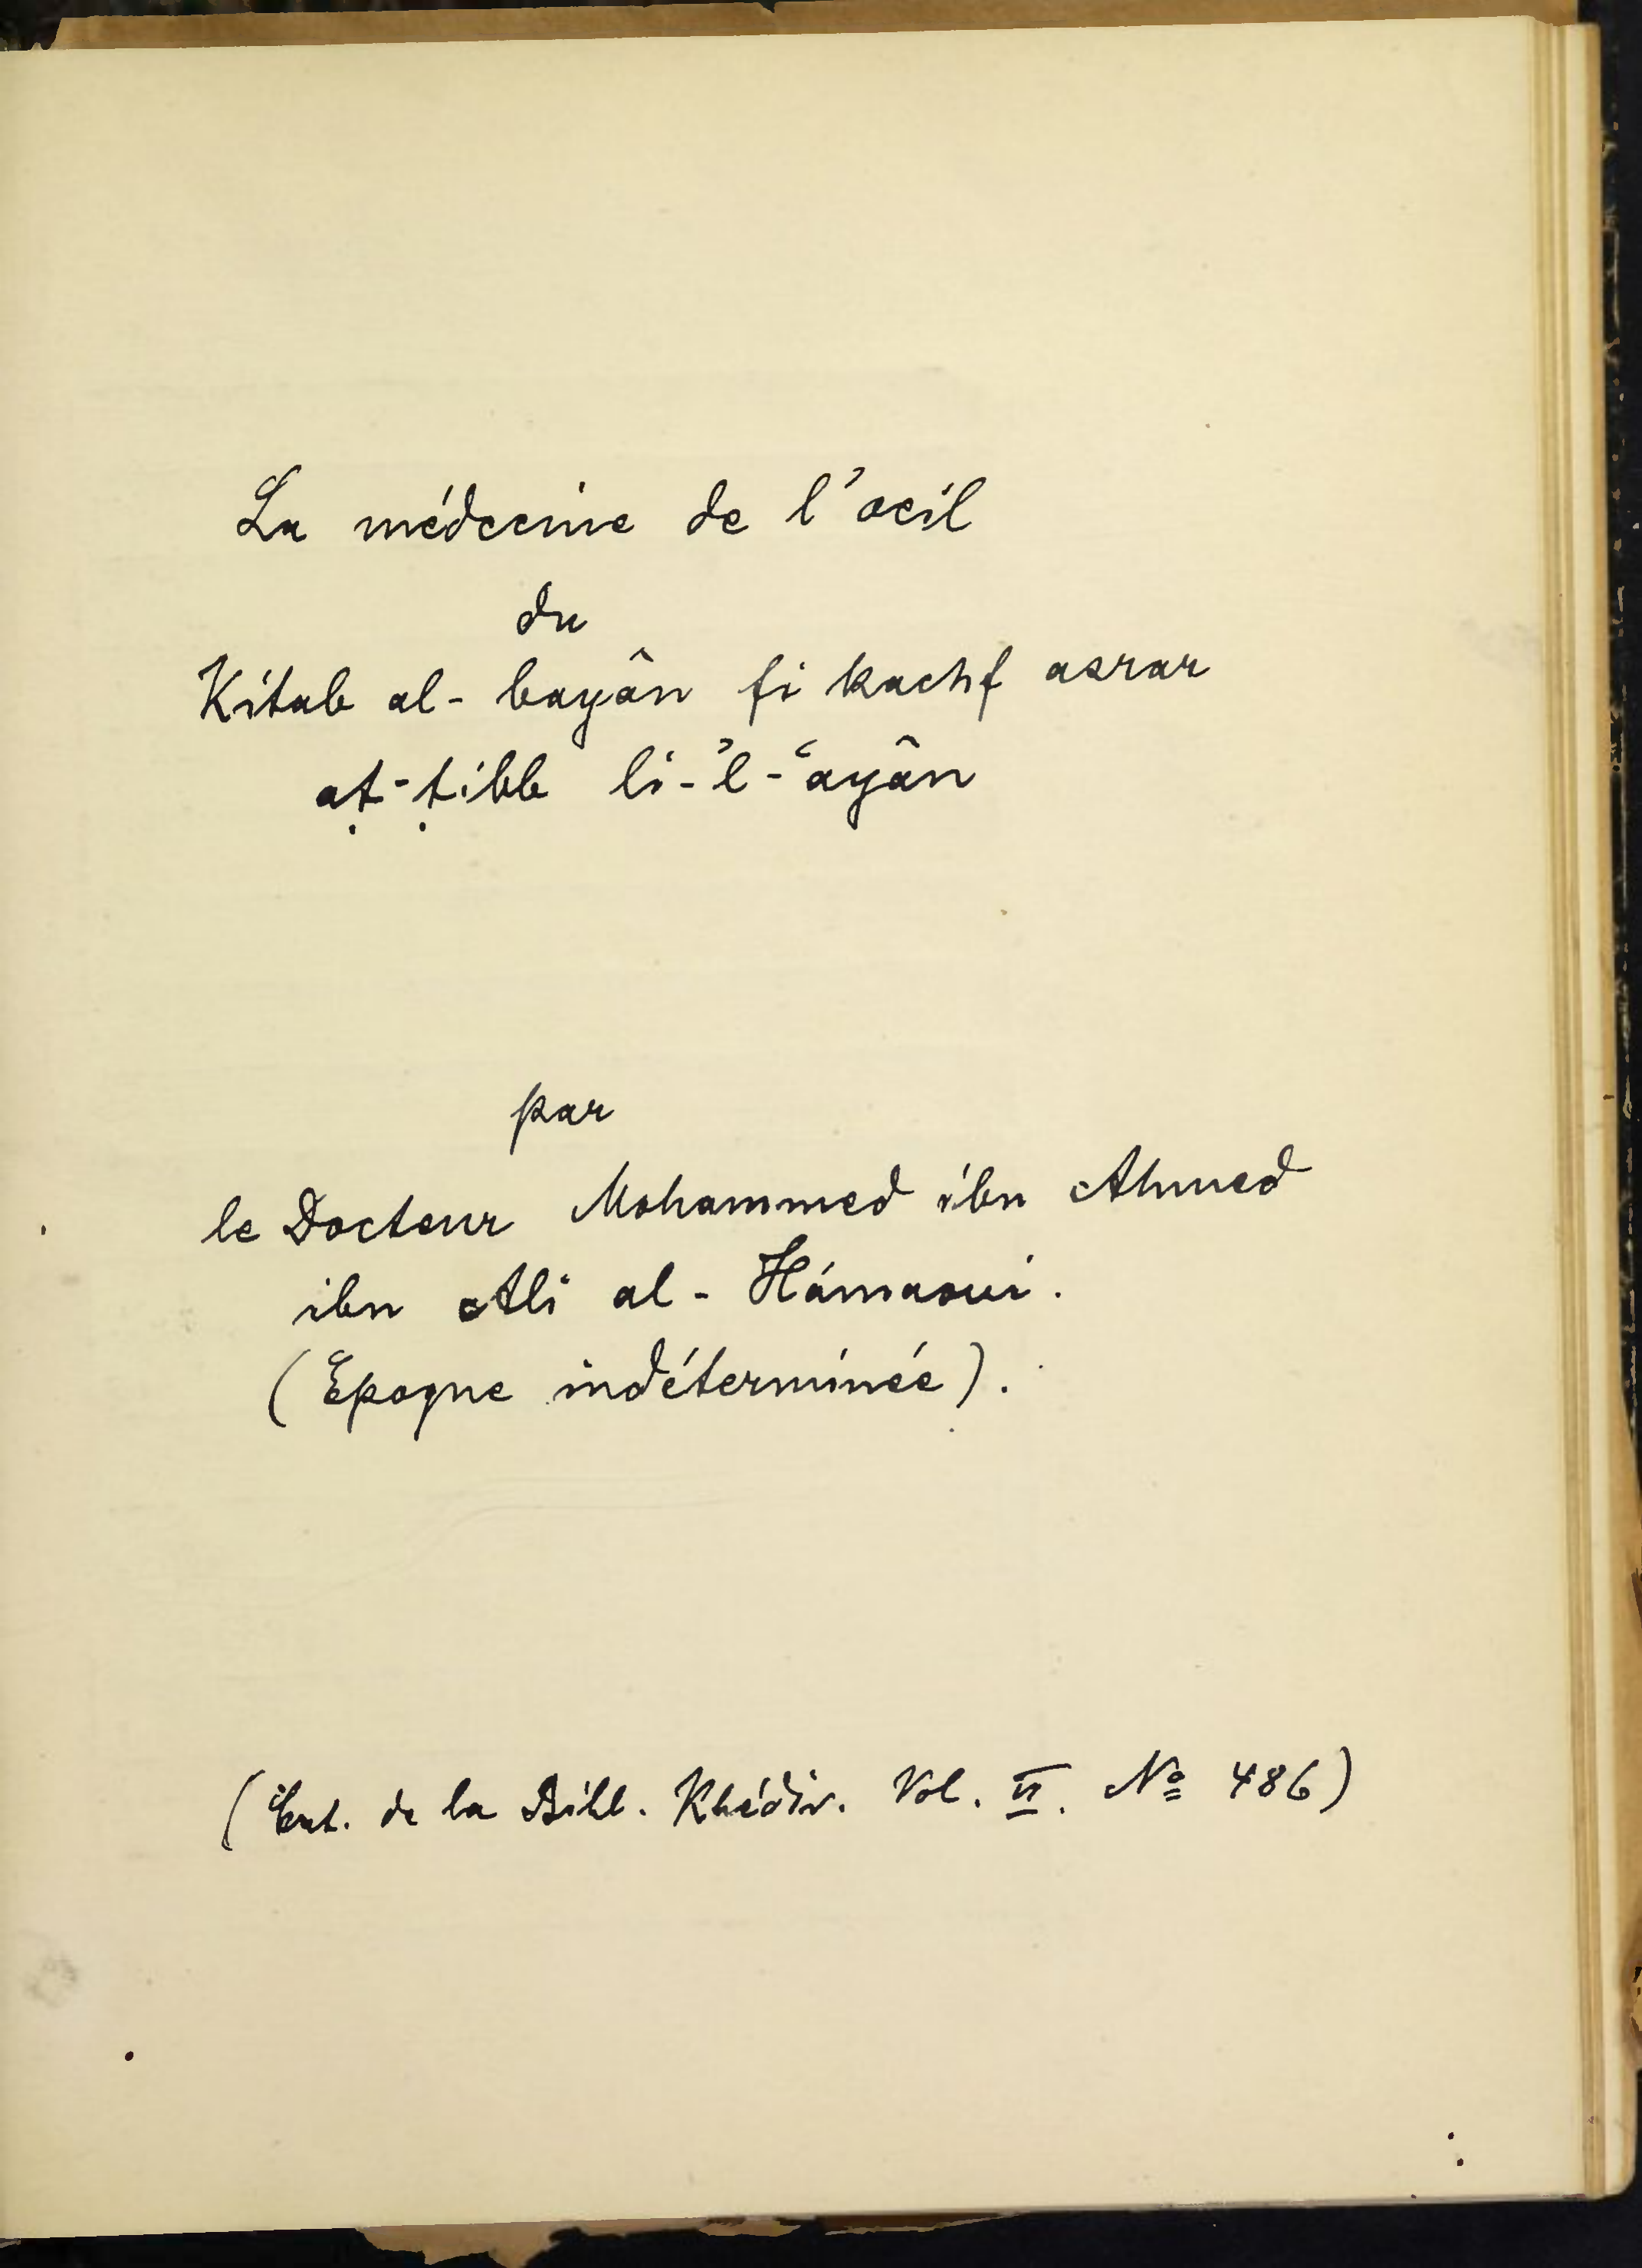 La médecine de l'oeil
du
Kitab al-bayân fi kachf asrar
aṭ-ṭibb li-'l-ʿayân
par
le Docteur Mohammed ibn Ahmed
ibn Ali al-Hámaoui.
(Epoque indéterminée).
(Cat. de la Bibl. Khédiv. Vol. VI. Nº 486)